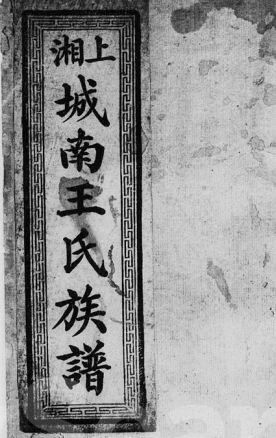 上湘
城南王氏族譜